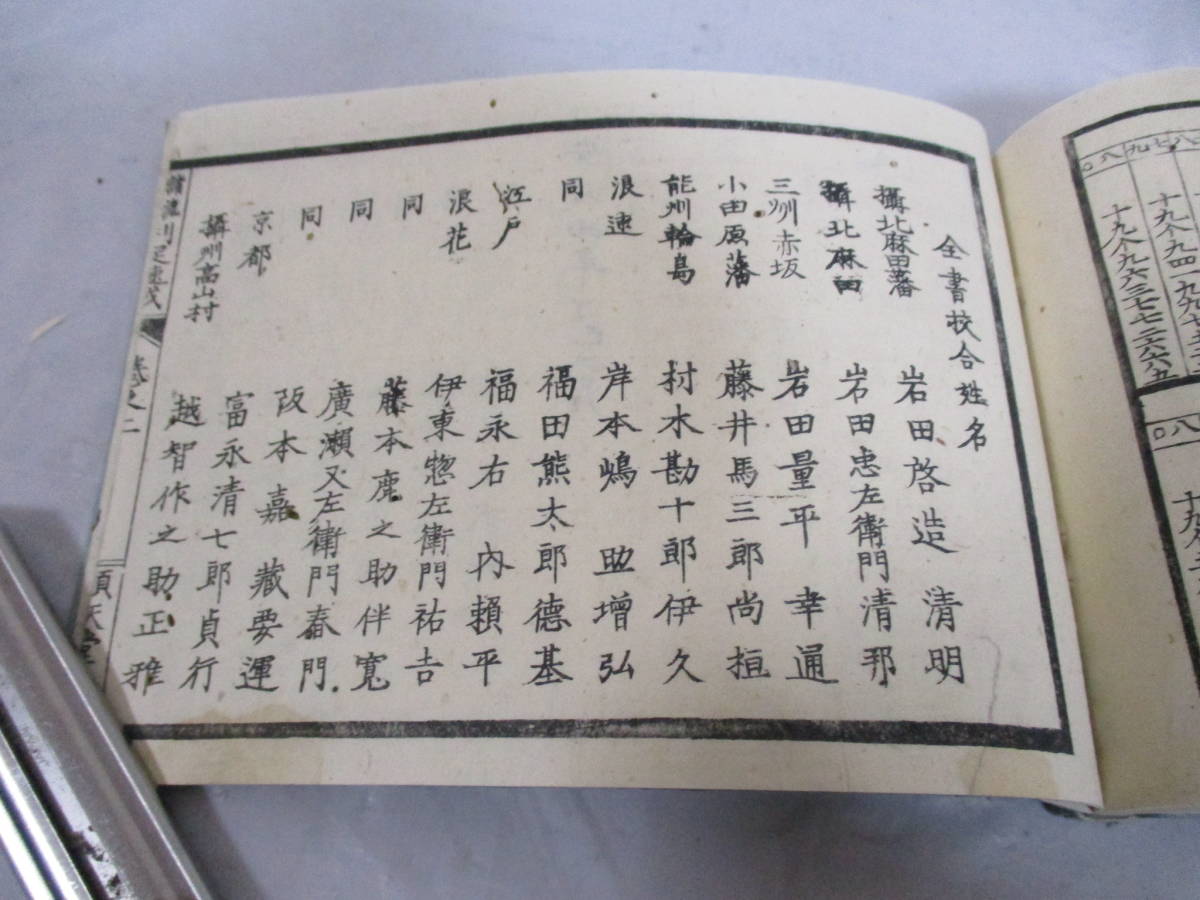 全書挍合姓名
攝北麻田藩 岩田啓造清明
攝北麻田 岩田忠左衛門清邦
三州赤坂 岩田量平幸通
小田原藩 藤井馬三郎尚恒
能州輪島 村木勘十郎伊久
浪速 岸本嶋助增弘
同 福田熊太郎德基
江戸 福永右内頼平
浪花 伊東惣左衛門祐吉
同 藤本鹿之助伴寬
同 廣瀬又左衛門春門
同 阪本嘉藏要運
京都 富永清七郎貞行
攝州高山村 越智作之助正雅